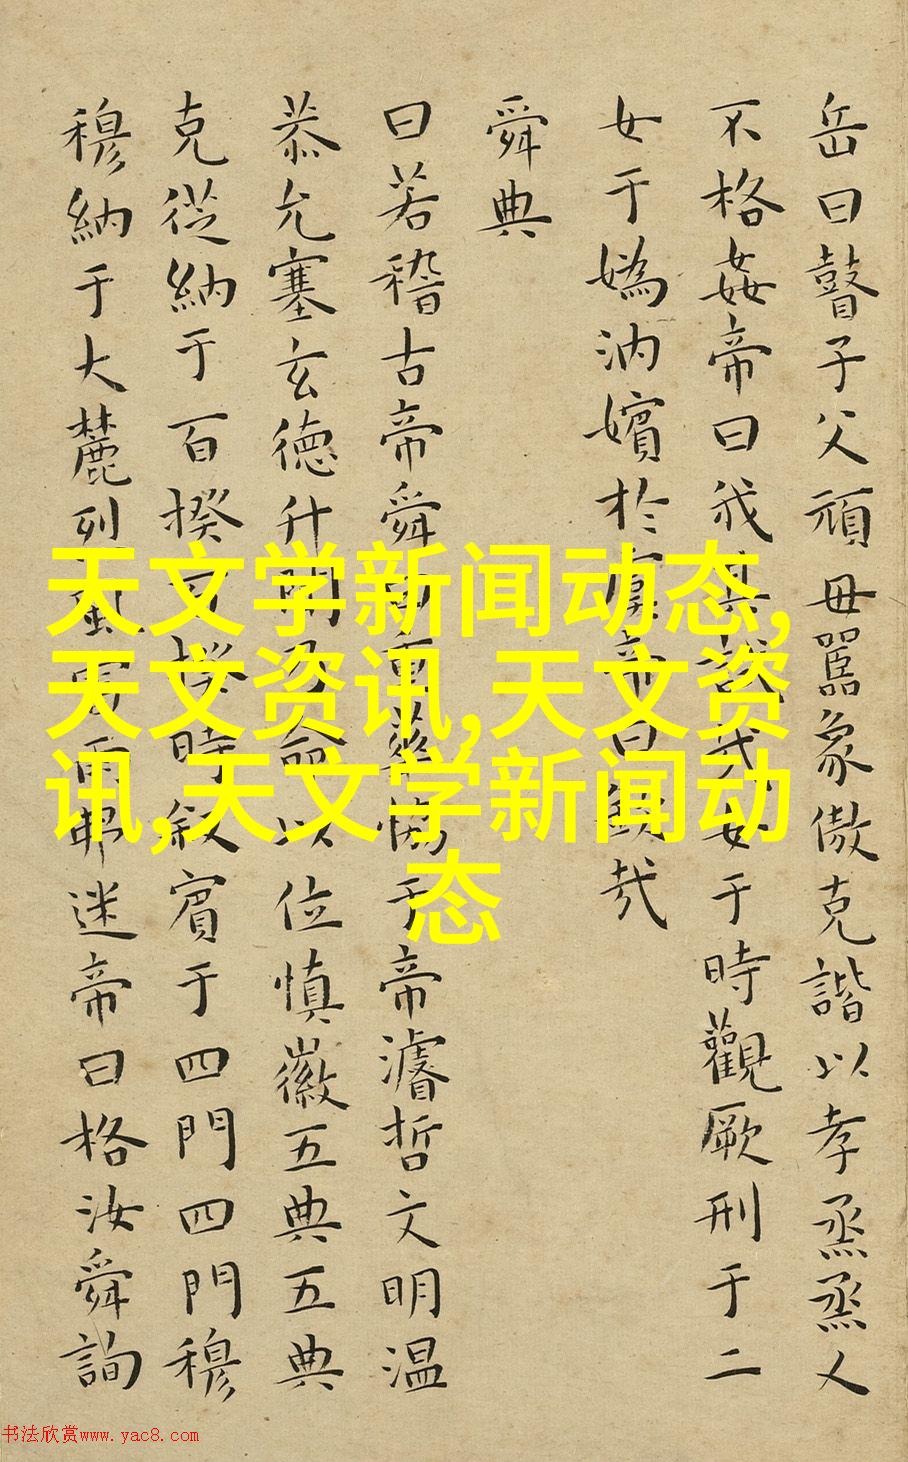 岳曰瞽子父頑毋嚚象傲克諧以孝烝烝乂
不格姦帝曰我其試哉女于時觀厥刑于二
女于媯汭嬪於虞帝曰欽哉
舜典
曰若稽古帝舜曰重華協于帝濬哲文明温
恭允塞玄德升聞乃命以位慎徽五典五典
克從納于百揆百揆時敘賓于四門四門穆
穆納于大麓烈風雷雨弗迷帝曰格汝舜詢
天文学新闻动态,
天文资讯,天文资
讯,天文学新闻动
态
书法欣赏www.yac8.com